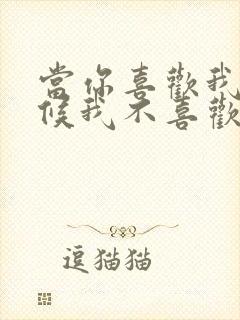 當你喜歡我
候我不喜歡
逗猫猫